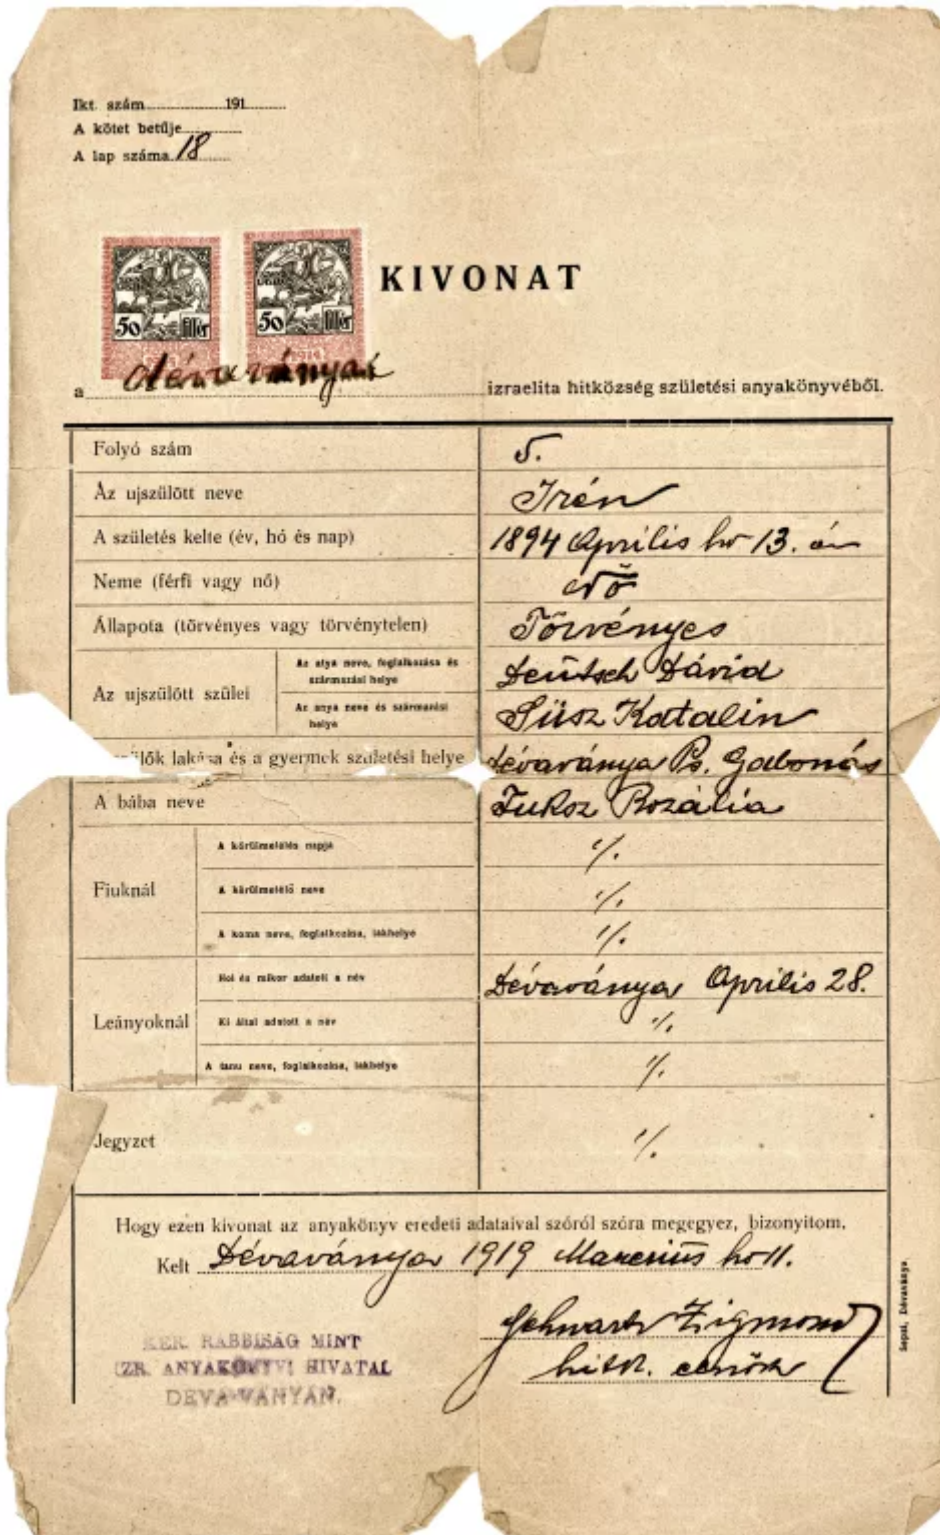 Ikt. szám 191
A kötet betűje
A lap száma 18
50 fillér 50 fillér
KIVONAT
a dévaványai izraelita hitközség születési anyakönyvéből.
Folyó szám 5.
Az ujszülött neve Irén
A születés kelte (év, hó és nap) 1894 Április hó 13. án
Neme (férfi vagy nő) Nő
Állapota (törvényes vagy törvénytelen) Törvényes
Az ujszülött szülei
Az atya neve, foglalkozása és származási helye Deütsch Dávid
Az anya neve és származási helye Süsz Katalin
ülők lakása és a gyermek születési helye Dévaványa Ps. Gabonás
A bába neve Fuksz Rozália
Fiuknál
A körülmetélés napja ·/.
A körülmetélő neve ·/.
A koma neve, foglalkozása, lakhelye ·/.
Leányoknál
Hol és mikor adatott a név Dévaványa Április 28.
Ki által adatott a név ·/.
A tanu neve, foglalkozása, lakhelye ·/.
Jegyzet ·/.
Hogy ezen kivonat az anyakönyv eredeti adataival szóról szóra megegyez, bizonyitom.
Kelt Dévaványa 1919 Marczius hó 11.
Schwartz Zigmond
hitk. elnök
KER. RABBISÁG MINT
IZR. ANYAKÖNYVI HIVATAL
DÉVA-VÁNYÁN.
Sopsi, Dévaványa.